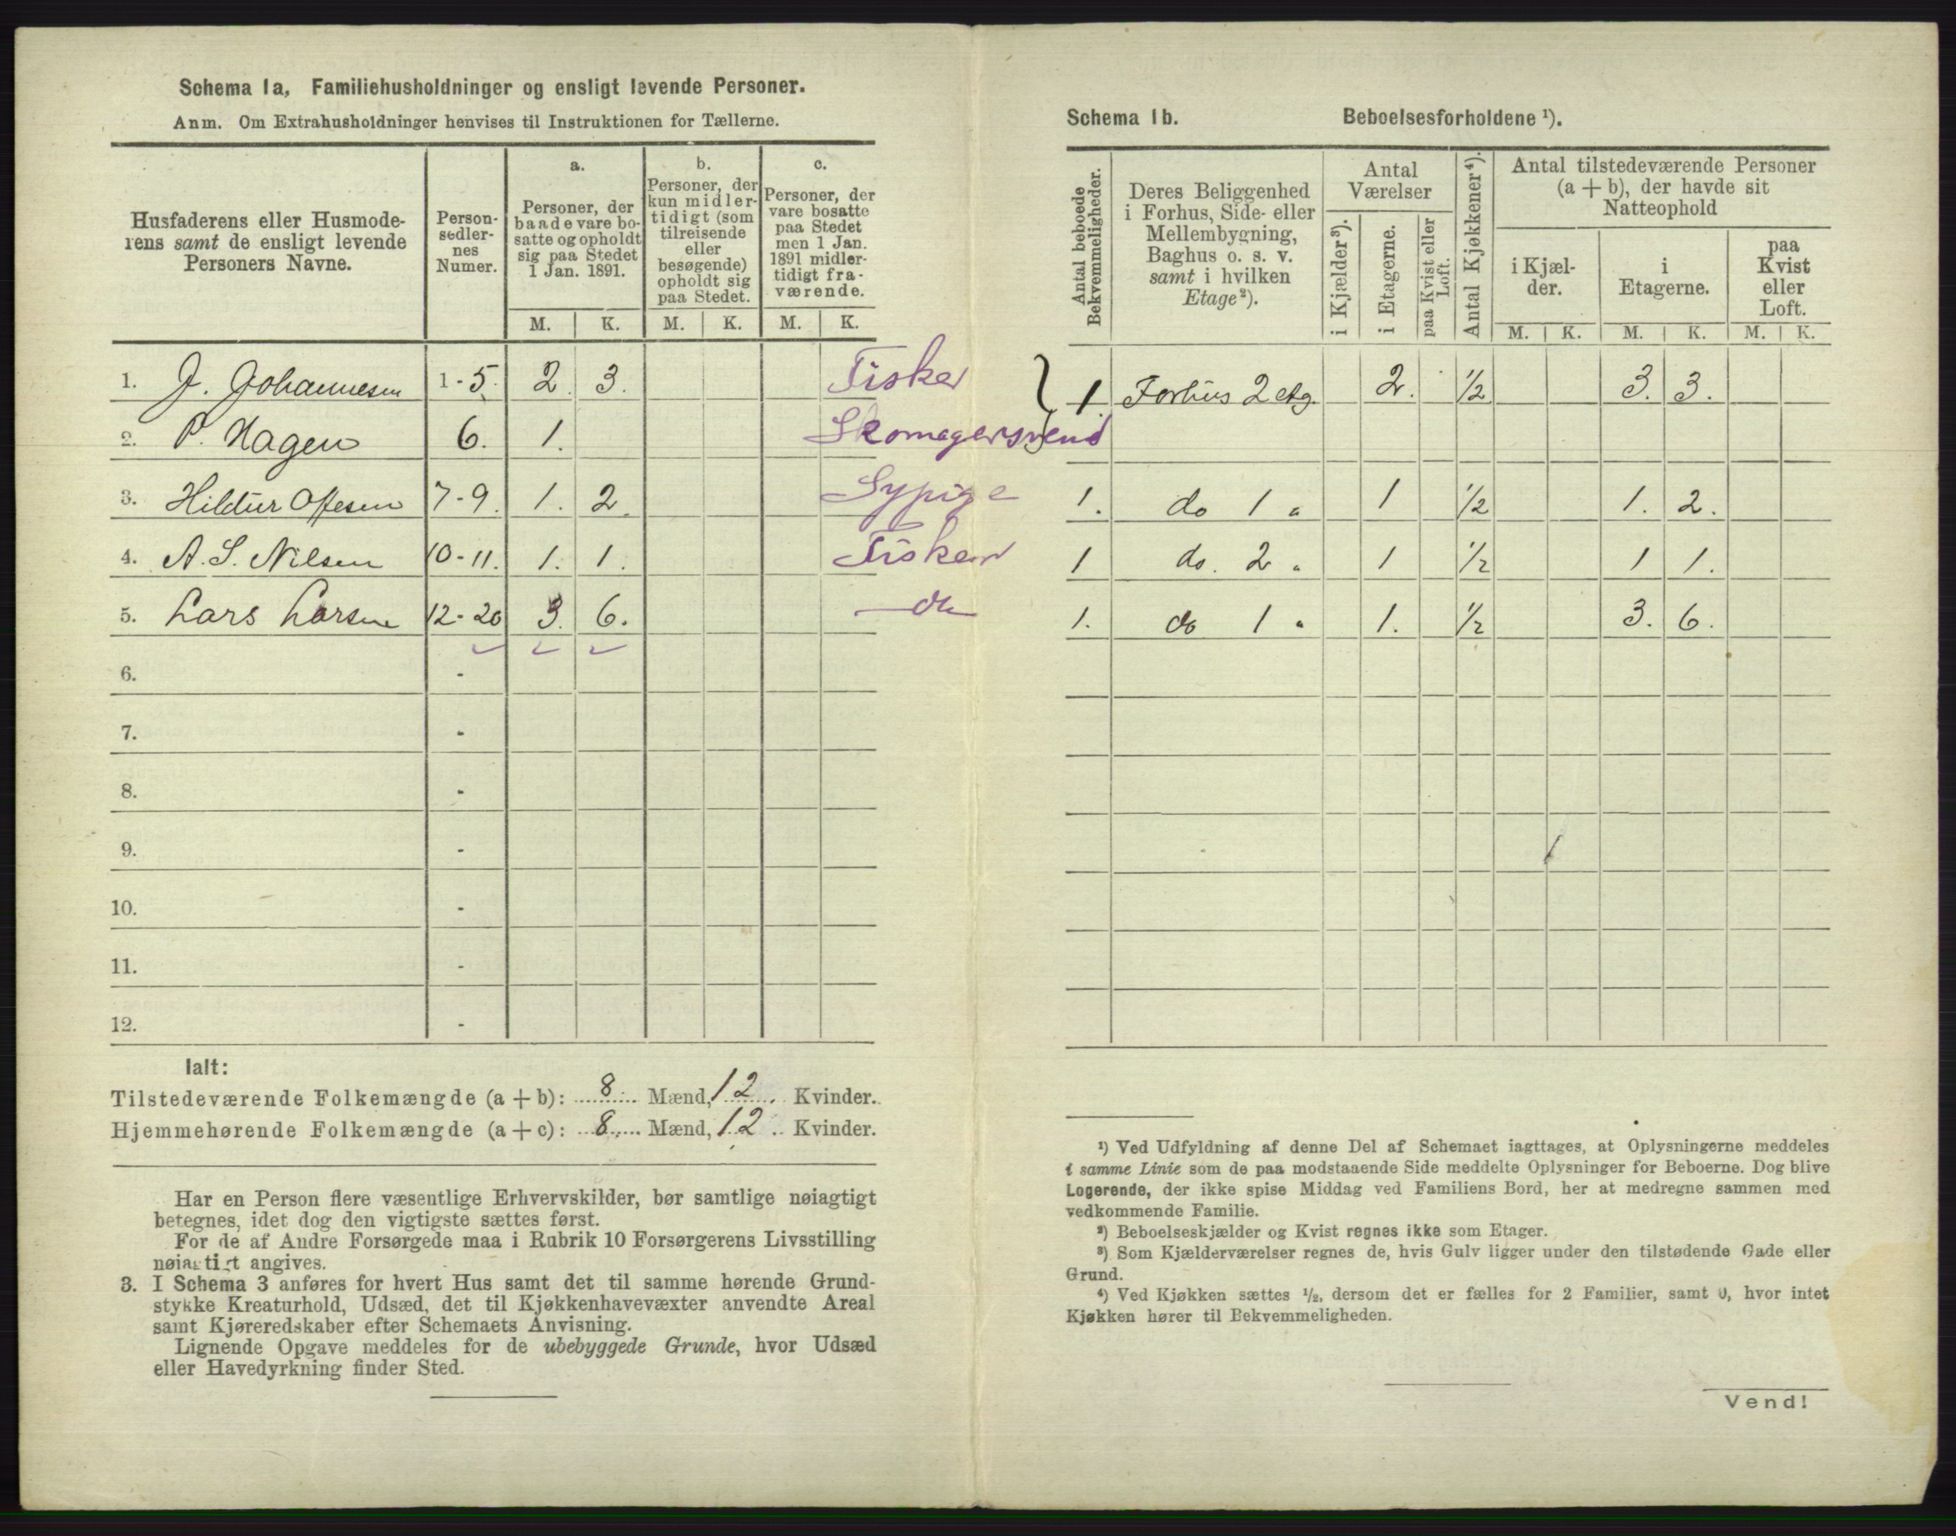 Schema 1a, Familiehusholdninger og ensligt levende Personer.
Anm. Om Extrahusholdninger henvises til Instruktionen for Tællerne.
Husfaderens eller Husmode-
rens samt de ensligt levende
Personers Navne.
Person-
sedler-
nes
Numer.
a.
Personer, der
baade vare bo-
satte og opholdt
sig paa Stedet
1 Jan. 1891.
b.
Personer, der
kun midler-
tidigt (som
tilreisende
eller
besøgende)
opholdt sig
paa Stedet.
c.
Personer, der
vare bosatte
paa Stedet
men 1 Jan.
1891 midler-
tidigt fra-
værende.
M. K. M. K. M. K.
1. J. Johannesen 1-5. 2. 3. Fisker
2. P. Hagen 6. 1. Skomagersvend
3. Hildur Olsen 7-9. 1. 2. Sypige
4. A. S. Nilsen 10-11. 1. 1. Fisker
5. Lars Larsen 12-20 3. 6. do
6. -
7. -
8. -
9. -
10. -
11. -
12. -
Ialt:
Tilstedeværende Folkemængde (a + b): 8 Mænd, 12 Kvinder.
Hjemmehørende Folkemængde (a + c): 8 Mænd, 12 Kvinder.
Har en Person flere væsentlige Erhvervskilder, bør samtlige nøiagtigt
betegnes, idet dog den vigtigste sættes først.
For de af Andre Forsørgede maa i Rubrik 10 Forsørgerens Livsstilling
nøiagtigt angives.
3. I Schema 3 anføres for hvert Hus samt det til samme hørende Grund-
stykke Kreaturhold, Udsæd, det til Kjøkkenhavevæxter anvendte Areal
samt Kjøreredskaber efter Schemaets Anvisning.
Lignende Opgave meddeles for de ubebyggede Grunde, hvor Udsæd
eller Havedyrkning finder Sted.
Schema 1b. Beboelsesforholdene ¹).
Antal beboede
Bekvemmeligheder.
Deres Beliggenhed
i Forhus, Side- eller
Mellembygning,
Baghus o. s. v.
samt i hvilken
Etage²).
Antal
Værelser
i Kjælder³).
i Etagerne.
paa Kvist eller
Loft.
Antal Kjøkkener⁴).
Antal tilstedeværende Personer
(a + b), der havde sit
Natteophold
i Kjæl-
der.
i
Etagerne.
paa
Kvist
eller
Loft.
M. K. M. K. M. K.
1. Forhus 2 etg. 2. 1/2 3. 3.
1. do 1 " 1 1/2 1. 2.
1 do. 2 " 1 1/2 1 1.
1. do 1 " 1. 1/2 3. 6.
¹) Ved Udfyldning af denne Del af Schemaet iagttages, at Oplysningerne meddeles
i samme Linie som de paa modstaaende Side meddelte Oplysninger for Beboerne. Dog blive
Logerende, der ikke spise Middag ved Familiens Bord, her at medregne sammen med
vedkommende Familie.
²) Beboelseskjælder og Kvist regnes ikke som Etager.
³) Som Kjælderværelser regnes de, hvis Gulv ligger under den tilstødende Gade eller
Grund.
⁴) Ved Kjøkken sættes ½, dersom det er fælles for 2 Familier, samt 0, hvor intet
Kjøkken hører til Bekvemmeligheden.
Vend!